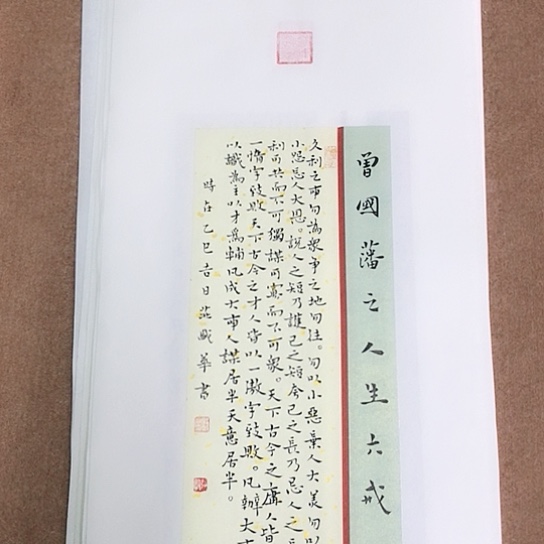 曾國藩之人生六戒
久利之事勿為衆爭之地勿往。勿以小惡棄人大美勿以
小怨忘人大恩。說人之短乃護己之短夸己之長乃忌人之長
利可共而不可獨謀可寡而不可衆。天下古今之庸人皆
一惰字致敗天下古今之才人皆以一傲字致敗。凡辦大事
以識為主以才為輔凡成大事人謀居半天意居半。
時在乙巳吉日華書